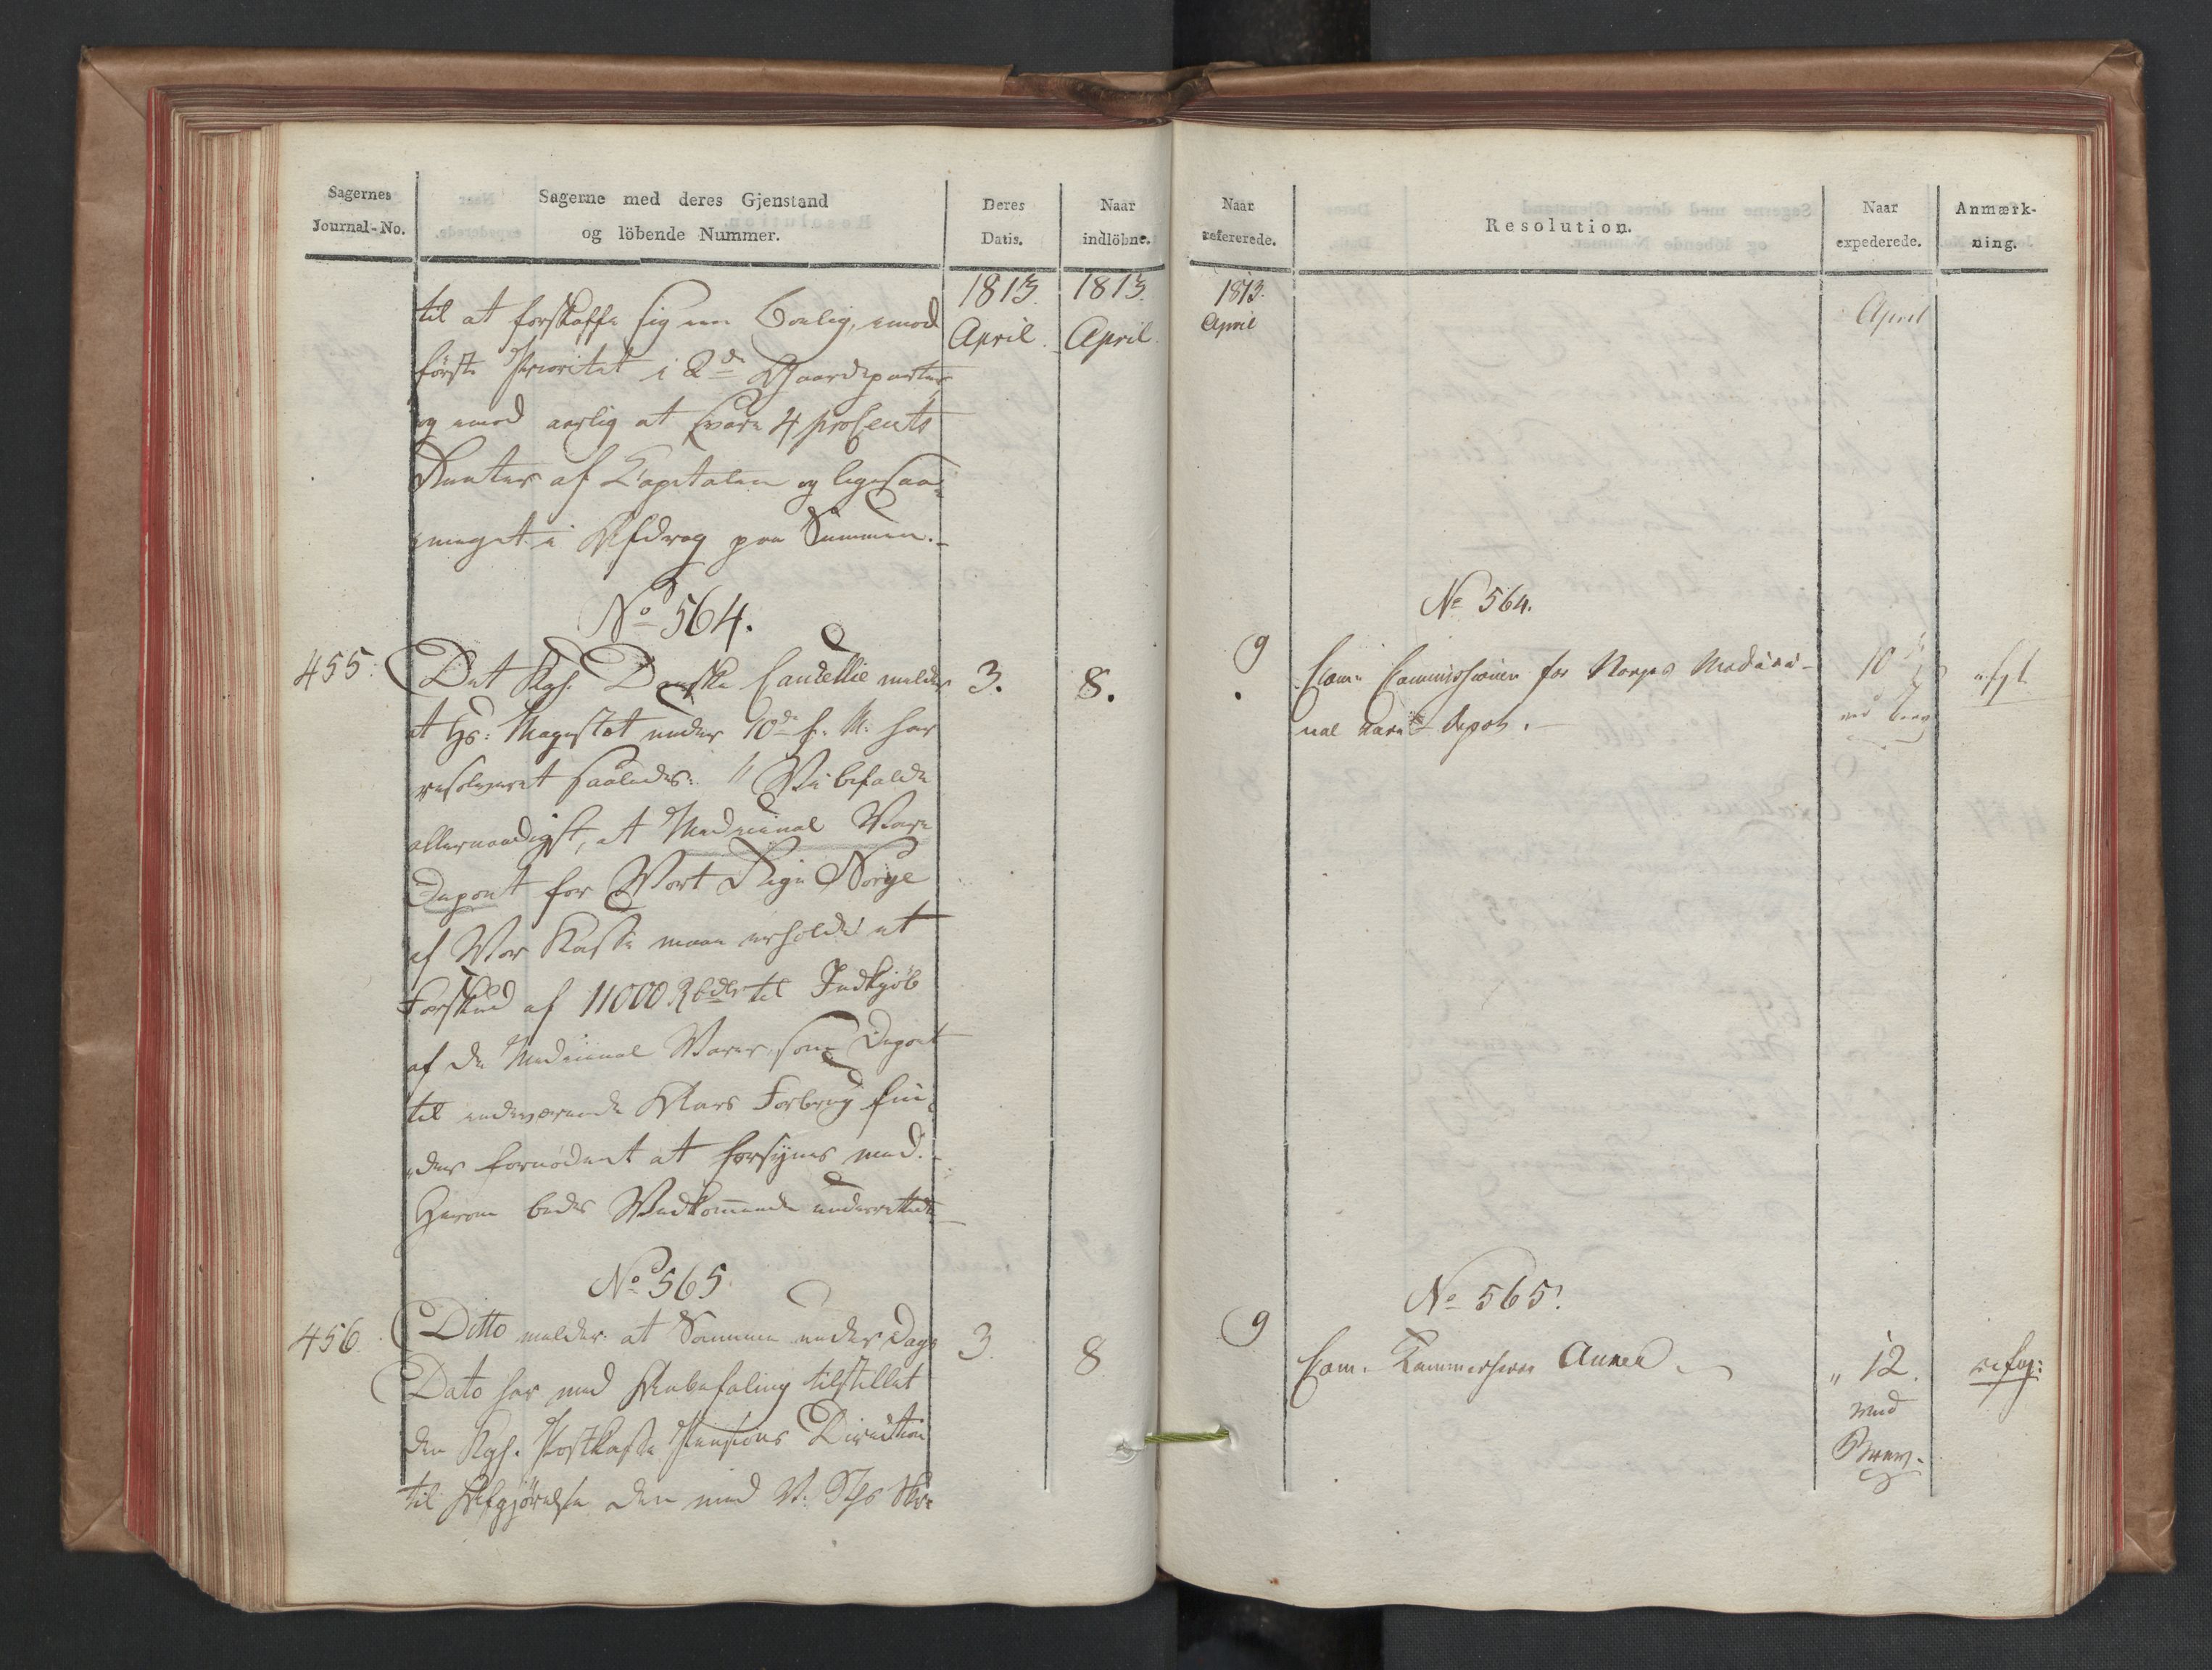 Sagernes
Journal-No.
Sagerne med deres Gjenstand
og löbende Nummer.
Deres
Datis.
Naar
indlöbne.
1813.
April.
1813.
April.
til at forskaffe sig en Bolig, imod
første Prioritet i Gaardparter
og imod aarlig at svare 4 proCento
Renter af Capitalen og ligesaa
meget i Afdrag paa Summen.-
No 564.
455.
Det Kgl. Danske Cancellie melder
3.
8.
at Hs: Majestæt under 10de f. M. har
resolveret saaledes: " Vi befale
allernaadigst, at Medicinal Vare
Depoet for Vort Rige Norge
af Vor Kasse maae erholde et
Forskud af 11000 Rbdlr til Indkjöb
af de Medicinal Varer, som Depoet
til indeværende Aars Forbrug fin-
des fornødent at forsynes med.-
Herom bedes Vedkommende underrettet
No 565.
456.
Ditto melder at Samme under Dags
3.
8
Dato har med Anbefaling tilstillet
den Kgl. Postkasse Pensions Direction
til Afgjørelse den med
Naar
refererede.
Resolution.
Naar
expederede.
Anmærk-
ning.
1813.
April
April
No 564.
9
Com. Commissionen for Norges Medici-
nal Vare-Depot.-
10
No 565.
9
Com. Kammerherre Anker.
" 12.
med
Brev.